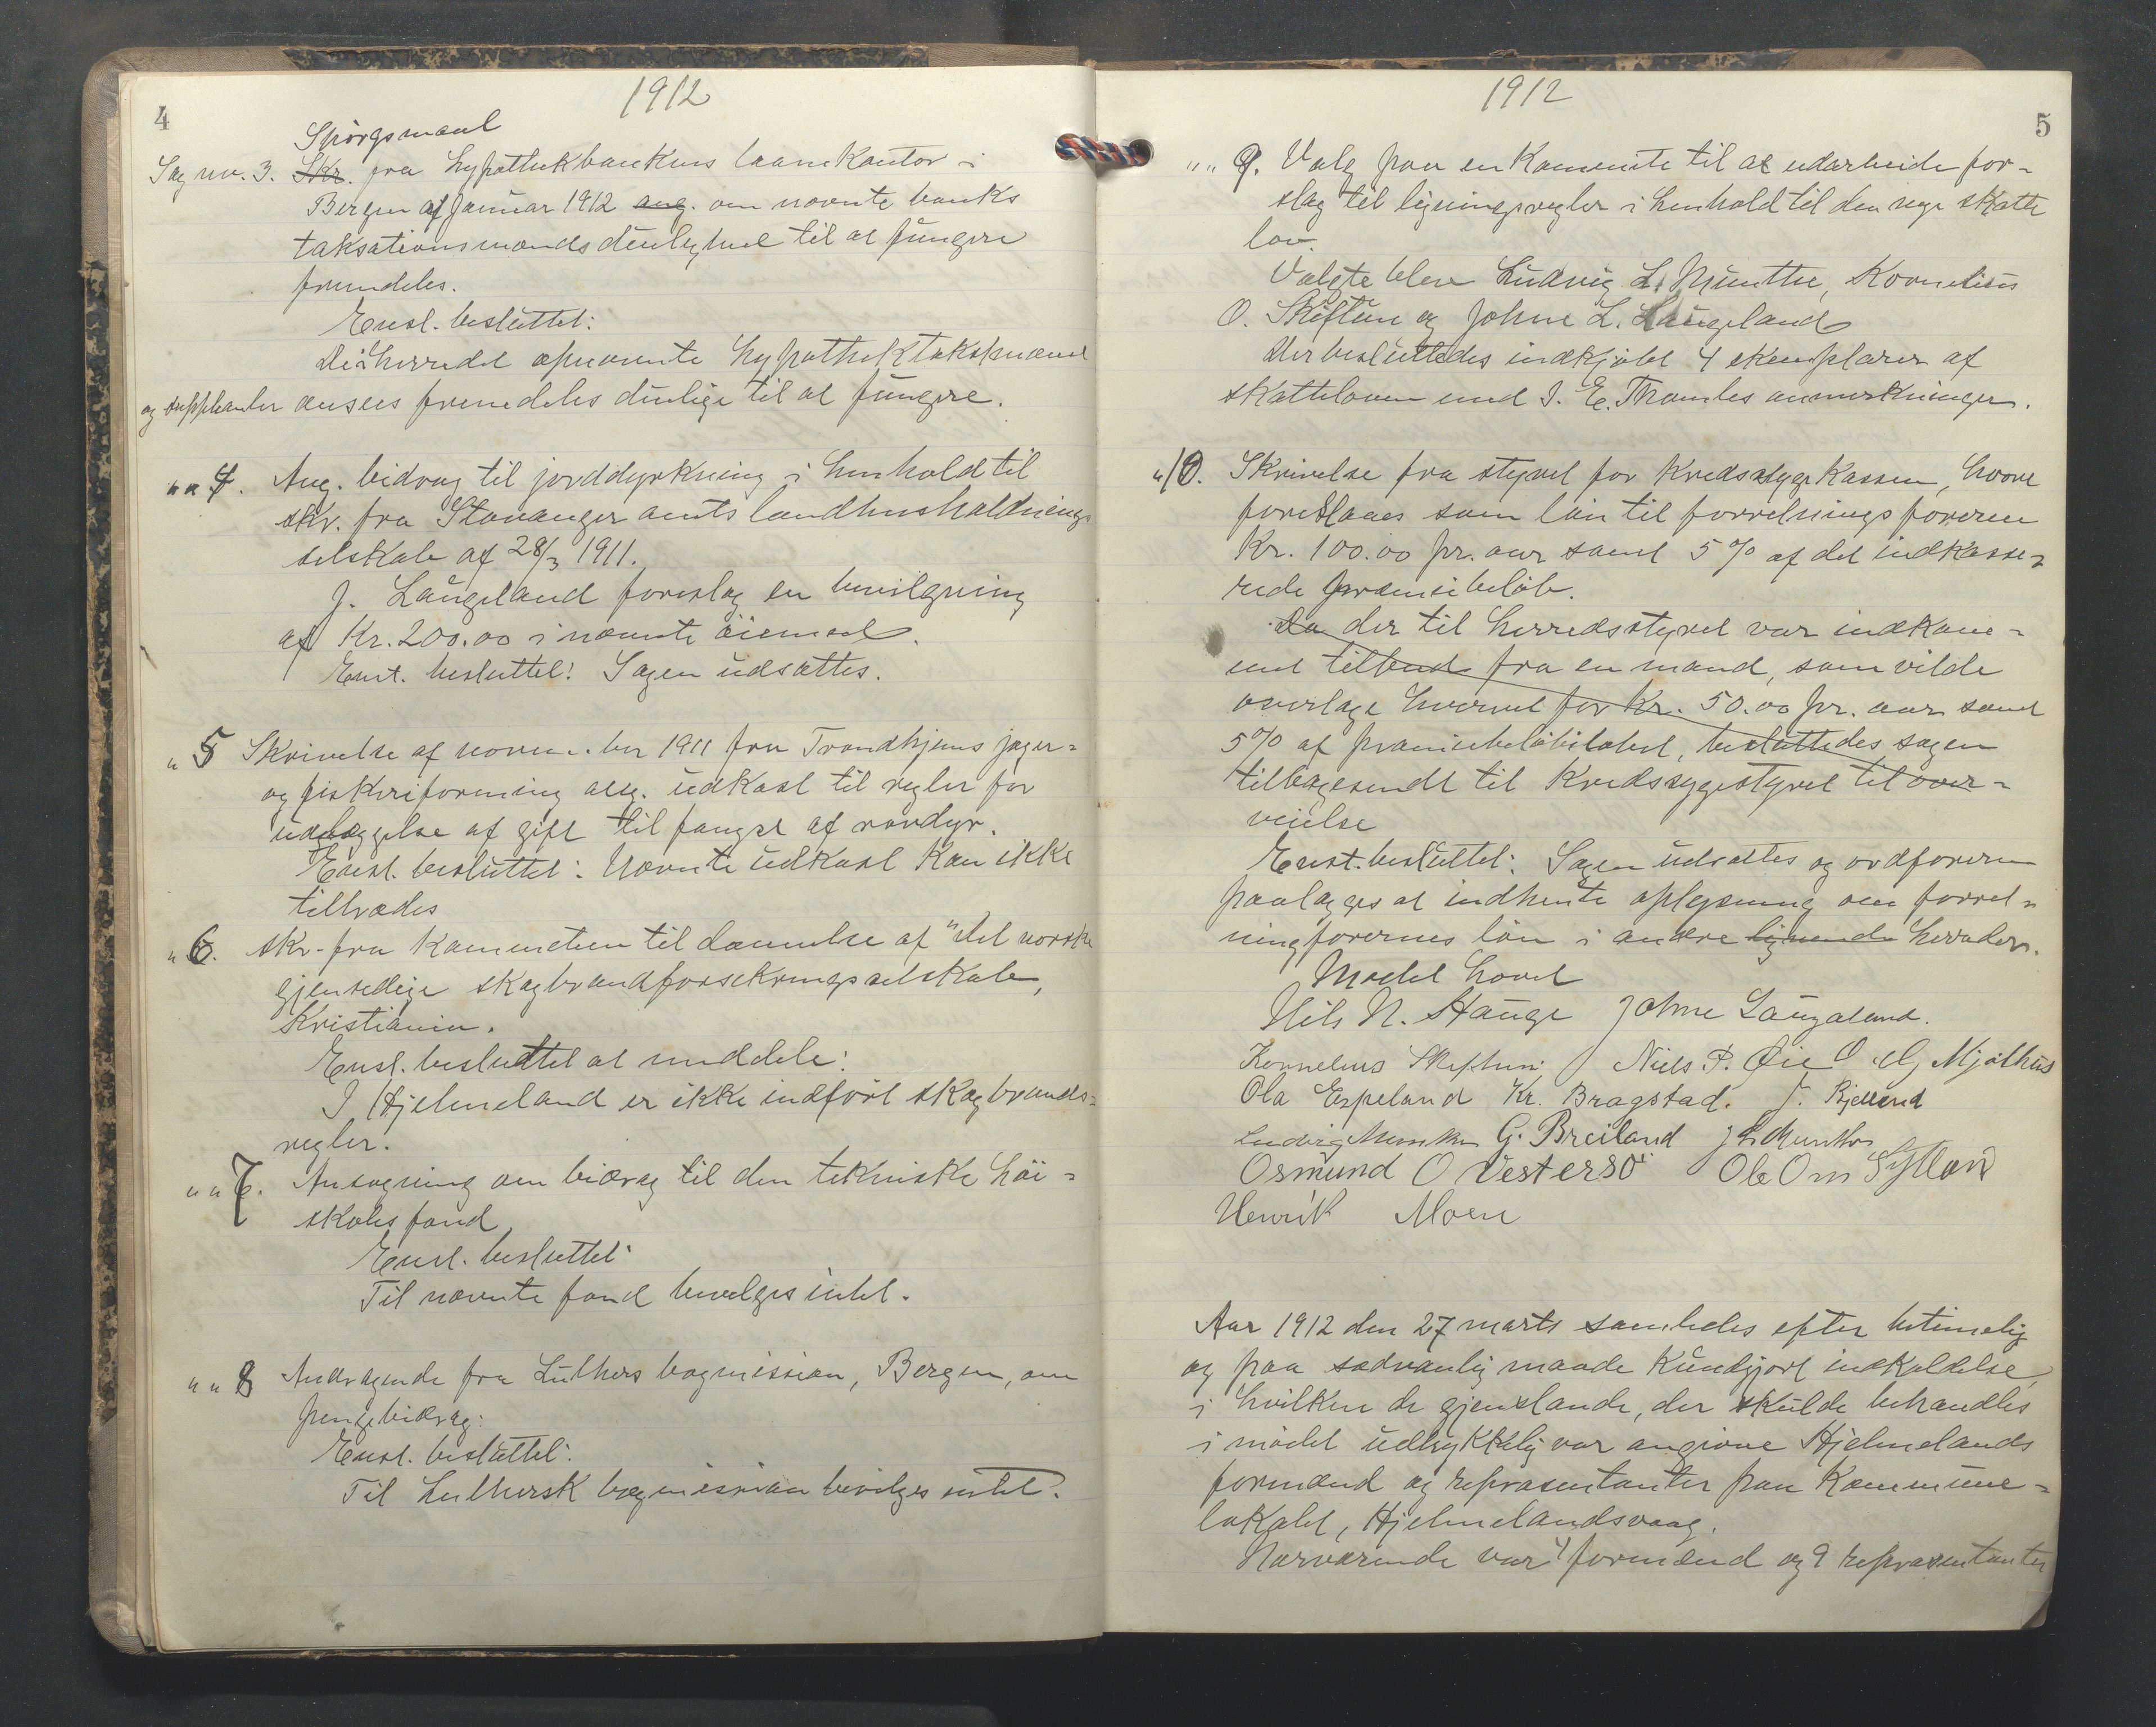 4
1912
Spörgsmaal
Sag nr. 3. Skr. fra hypothekbankens laanekontor i
Bergen af januar 1912 ang. om nævnte banks
taksationsmænds duelighed til at fungere
fremdeles.
Enst. besluttet:
De i herredet opnævnte hypothektakstmænd
og suppleanter ansees fremdeles duelige til at fungere.
" " 4. Ang. bidrag til jorddyrkning i henhold til
skr. fra Stavanger amts landhusholdnings
selskab af 28/3 1911.
J. Laugeland foreslog en bevilgning
af Kr. 200.00 i nævnte öiemed.
Enst. besluttet: Sagen udsættes.
" 5 Skrivelse af november 1911 fra Trondhjems jæger-
og fiskeriforening ang. udkast til regler for
udlæggelse af gift til fangst af rovdyr.
Enst. besluttet: Nævnte udkast kan ikke
tiltrædes
" 6. Skr. fra Kommiteen til dannelse af "Det norske
gjensidige skogbrandforsikringsselskab,
Kristiania.
Enst. besluttet at meddele:
I Hjelmeland er ikke indfört skogbrands-
regler.
" " 7. Ansögning om bidrag til den tekniske höi-
skoles fond
Enst. besluttet:
Til nævnte fond bevilges intet.
" " 8 Andragende fra Luthers bogmission, Bergen, om
pengebidrag:
Enst. besluttet:
Til Luthersk bogmission bevilges intet.
1912
5
" " 9. Valg paa en Komite til at udarbeide for-
slag til ligningsregler i henhold til den nye skatte
lov.
Valgte blev Ludvig L. Munthe, Kornelius
O. Skiftun og Johne L. Laugeland
Der besluttedes indkjöbt 4 eksemplarer af
skatteloven med I. E. Thomles anmerkninger.
" 10. Skrivelse fra styret for Kredssygekassen, hvori
foreslaaes som lön til forretningsföreren
Kr. 100.00 pr. aar samt 5 % af det indkasse-
rede præmiebelöb.
Da der til herredsstyret var indkom-
met tilbud fra en mand, som vilde
overtage hvervet for Kr. 50.00 pr. aar samt
5 % af præmiebelöbet, besluttedes sagen
tilbagesendt til Kredssygestyret til over-
veielse
Enst. besluttet: Sagen udsættes og ordföreren
paalægges at indhente oplysning om forret-
ningförernes lön i andre lignende herreder.
Mödet hævet
Nils N. Hauge Johne Laugaland.
Kornelius Skiftun Niels P. Øie O. Mjølhus
Ola Espeland Kr. Bragstad. J. Kjelland
Ludvig Munthe G. Breiland J L Munthe
Osmund O Vestersö Ole Om Sytlan
Henrik Moen
Aar 1912 den 27 marts samledes efter betimelig
og paa sædvanlig maade kundgjort indkaldelse,
i hvilken de gjenstande, der skulde behandles
i mödet udtrykkelig var angivne Hjelmelands
formænd og repræsentanter paa Kommune-
lokalet, Hjelmelandsvaag.
Nærværende var 4 formænd og 9 repræsentanter